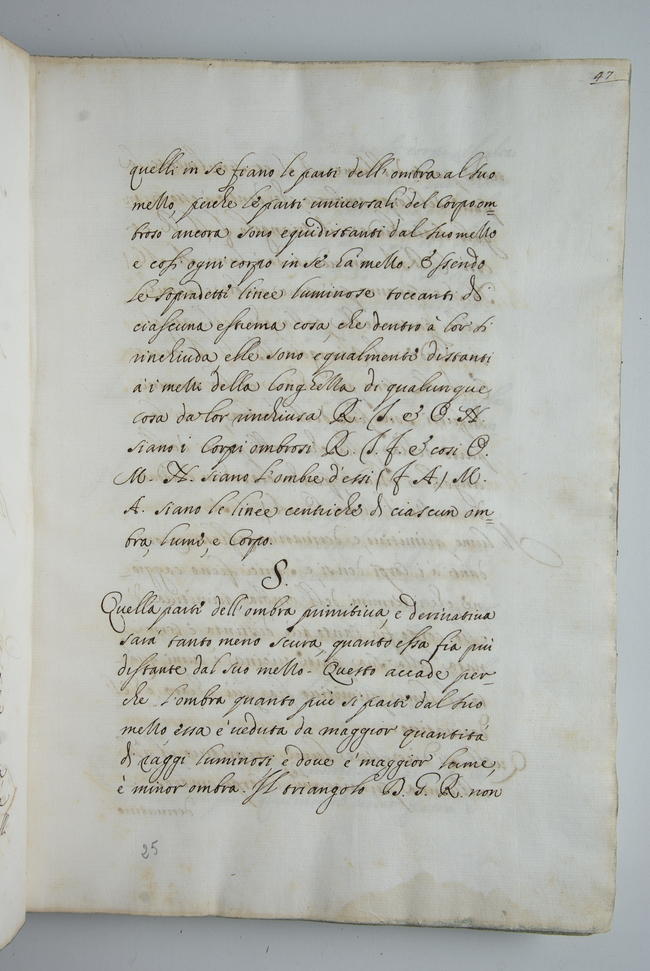 47
quelli in se fiano le parti dell'ombra al suo
mezzo, perche le parti universali del Corpo om=
broso ancora sono equidistanti dal suo mezzo
e cosi ogni corpo in se hà mezzo. Essendo
le sopradette linee luminose toccanti di
ciascuna estrema cosa, che dentro à lor si
rinchiuda, elle sono equalmente distanti
à i mezzi della longhezza di qualunque
cosa da lor rinchiusa R. S. e O. N.
siano i Corpi ombrosi R. S. f. e cosi O.
M. N. siano l'ombre d'essi (f A) M.
A. siano le linee centriche di ciascun om=
bra, lume, e Corpo.
S.
Quella parte dell'ombra primitiva, e derivativa
sarà tanto meno scura, quanto essa fia più
distante dal suo mezzo. Questo accade per=
che l'ombra quanto più si parte dal suo
mezzo essa e' veduta da maggior quantità
di raggi luminosi e dove e' maggior lume,
è minor ombra. Il triangolo B. G. R. non
25